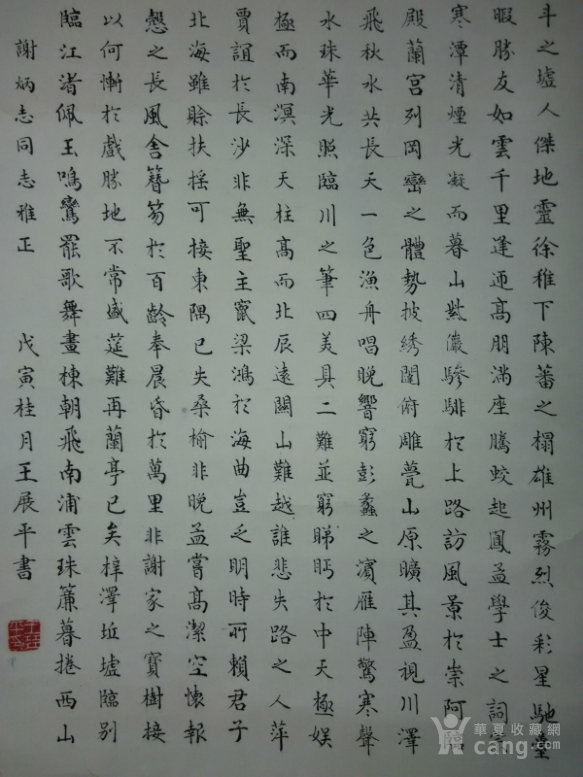 斗之墟人傑地靈徐稚下陳蕃之榻雄州霧烈俊彩星馳臺
暇勝友如雲千里逢迊高朋滿座騰蛟起鳳孟學士之詞
寒潭清煙光凝而暮山紫儼驂騑於上路訪風景於崇阿
殿蘭宮列岡巒之體勢披綉闥俯雕甍山原曠其盈視川澤
飛秋水共長天一色漁舟唱晚響窮彭蠡之濱雁陣驚寒聲
水珠華光照臨川之筆四美具二難並窮睇眄於中天極娛
極而南溟深天柱高而北辰遠關山難越誰悲失路之人萍
賈誼於長沙非無聖主竄梁鴻於海曲豈乏明時所賴君子
北海雖賒扶搖可接東隅已失桑榆非晚孟嘗高潔空懷報
慤之長風舍簪笏於百齡奉晨昏於萬里非謝家之寶樹接
以何慚於戲勝地不常盛筵難再蘭亭已矣梓澤坵墟臨別
臨江渚佩玉鳴鸞罷歌舞畫棟朝飛南浦雲珠簾暮捲西山
謝炳志同志雅正 戊寅桂月王展平書
華夏收藏網
cang.com